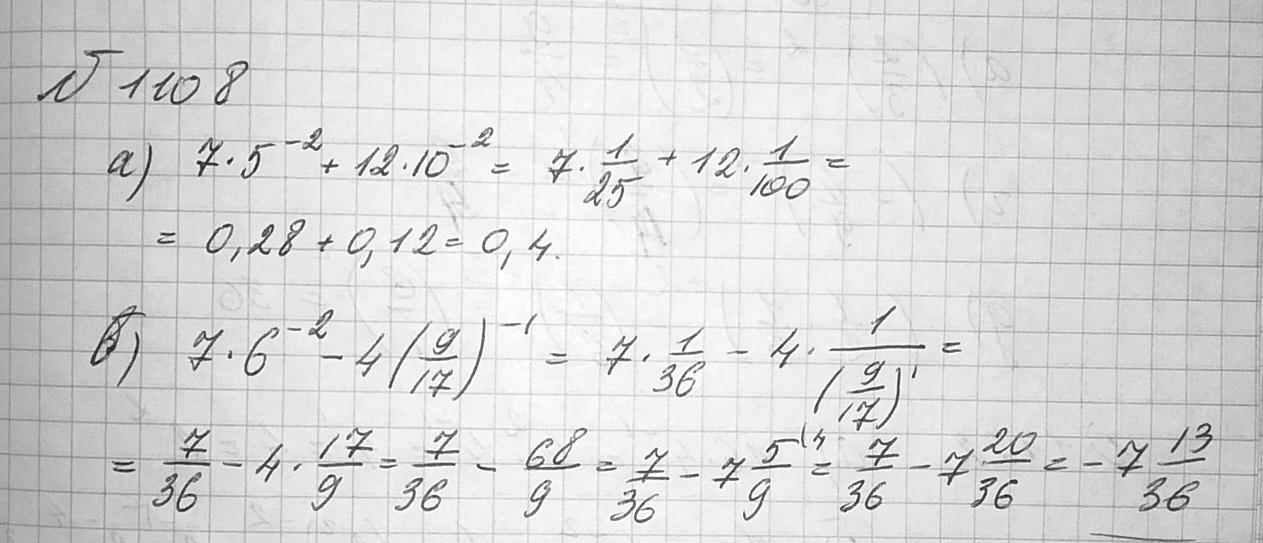 № 1108
а) 7·5⁻² + 12·10⁻² = 7·1/25 + 12·1/100 =
= 0,28 + 0,12 = 0,4.
б) 7·6⁻² - 4(9/17)⁻¹ = 7·1/36 - 4·1/(9/17)¹ =
= 7/36 - 4·17/9 = 7/36 - 68/9 = 7/36 - 7 5/9⁽⁴ = 7/36 - 7 20/36 = -7 13/36